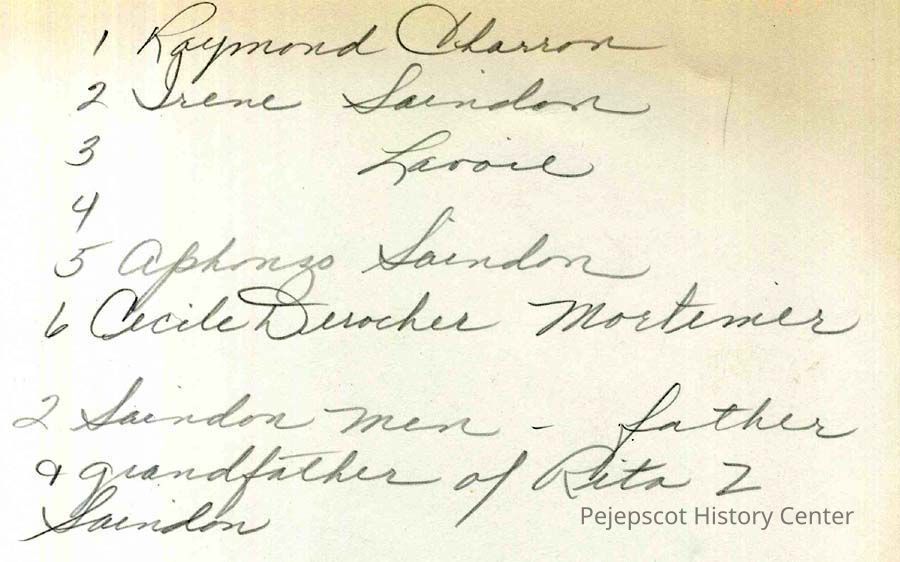 1 Raymond Charron
2 Irene Saindon
3 Lavoie
4
5 Aphonso Saindon
6 Cecile Derocher Mortimer
2 Saindon men - father
& grandfather of Rita Z
Saindon
Pejepscot History Center